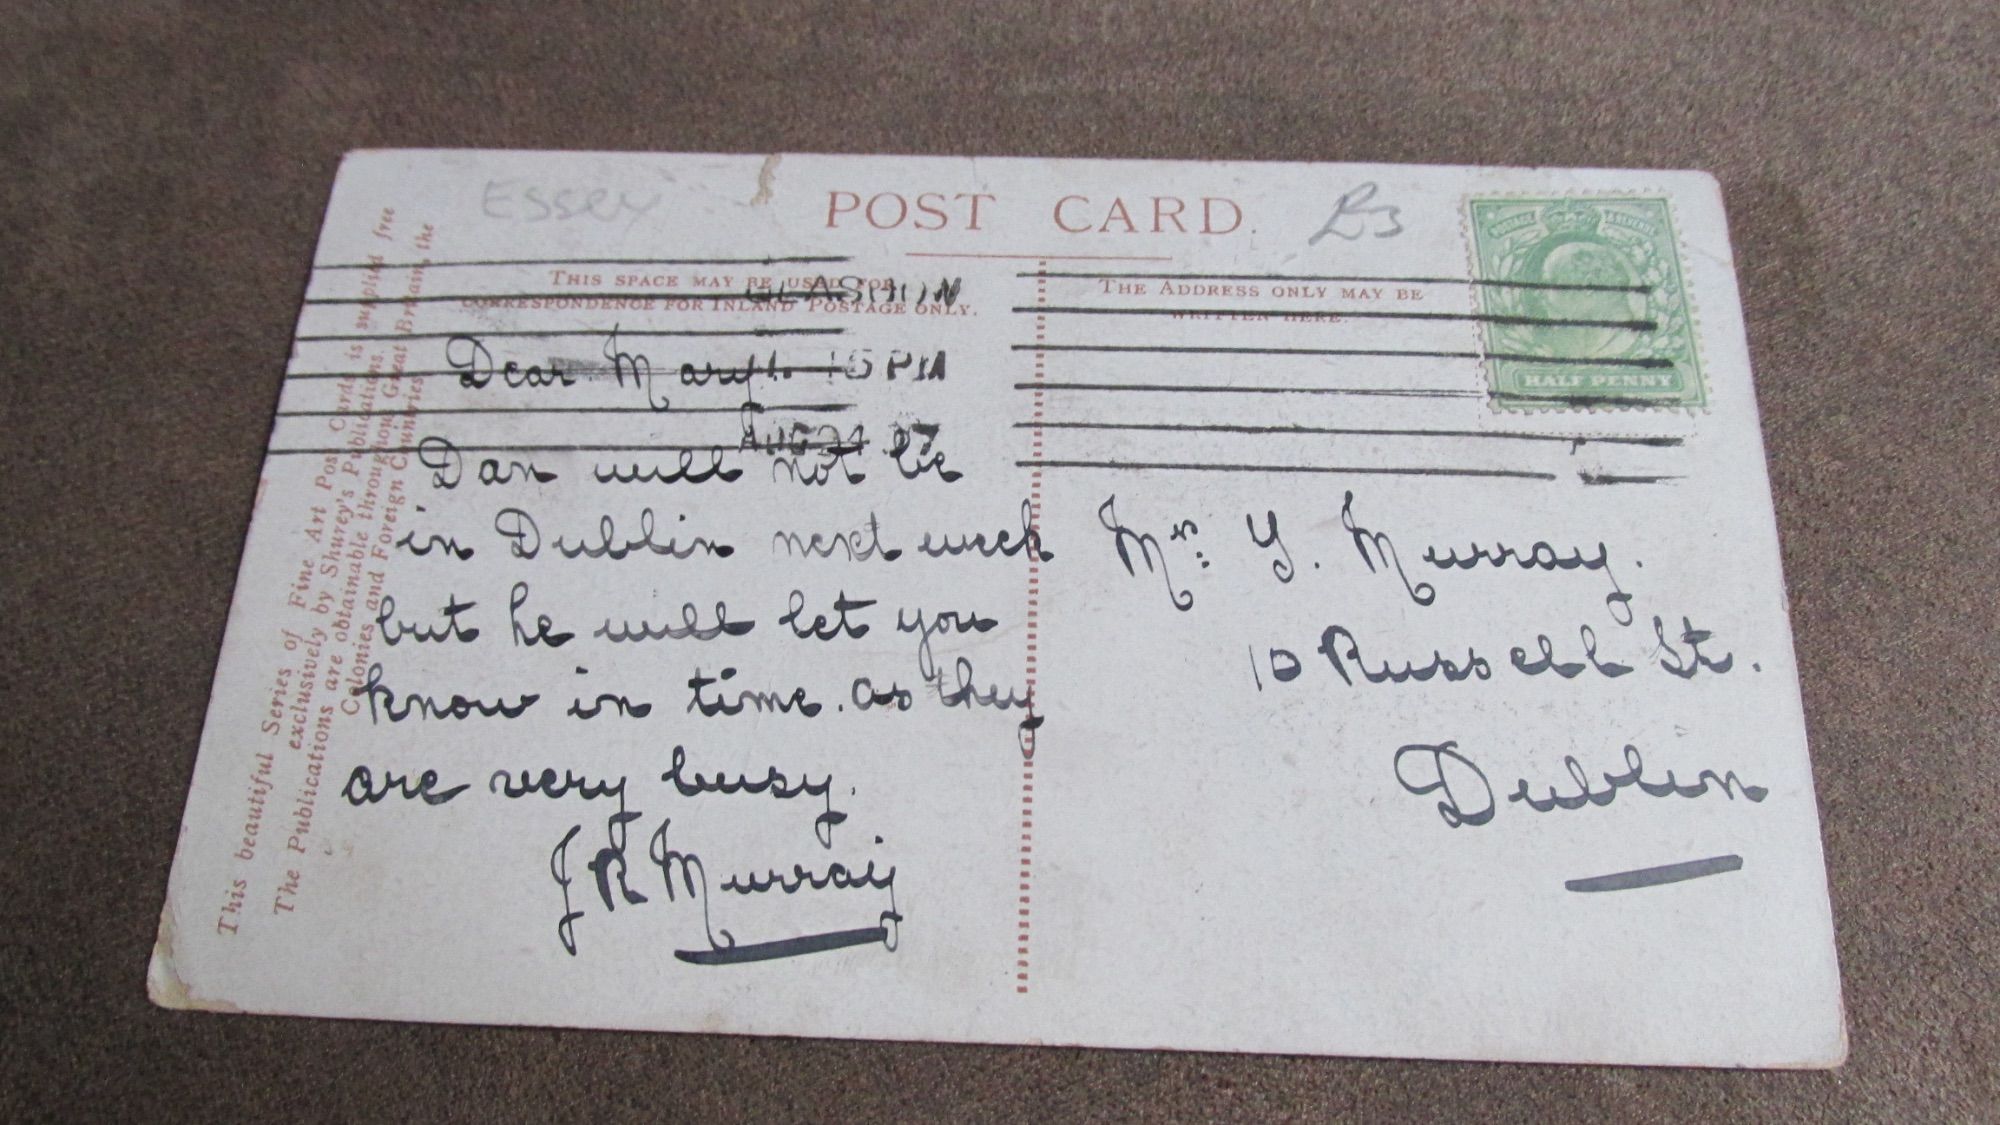 Essex
POST CARD.
£3
THIS SPACE MAY BE USED FOR
CORRESPONDENCE FOR INLAND POSTAGE ONLY.
THE ADDRESS ONLY MAY BE
WRITTEN HERE.
POSTAGE & REVENUE
HALF PENNY
15 PM
AUG 24 07
Dear Mary
Dan will not be
in Dublin next week
but he will let you
know in time. as they
are very busy.
J R Murray
Mrs. Y. Murray.
10 Russell St.
Dublin
This beautiful Series of Fine Art Post Cards is supplied free
exclusively by Shurey's Publications.
The Publications are obtainable throughout Great Britain, the
Colonies and Foreign Countries.